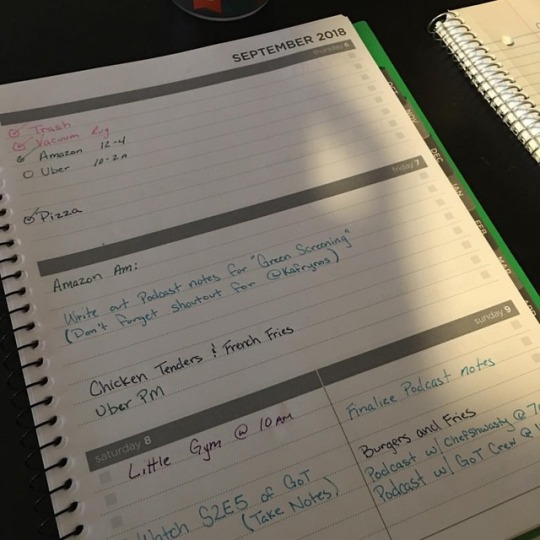 SEPTEMBER 2018
thursday 6
Trash
Vacuum Rug
Amazon 12-4
Uber 10-2a
Pizza
friday 7
Amazon Am:
Write out Podcast notes for "Green Screening"
(Don't forget shoutout for @Kafryns)
Chicken Tenders & French Fries
Uber PM
saturday 8
Little Gym @ 10 AM
Watch S2E5 of GoT
(Take Notes)
sunday 9
Finalize Podcast notes
Burgers and Fries
Podcast w/ Chefshwasty @ 7
Podcast w/ GoT Crew @
NOV
DEC
JAN
FEB
MAR